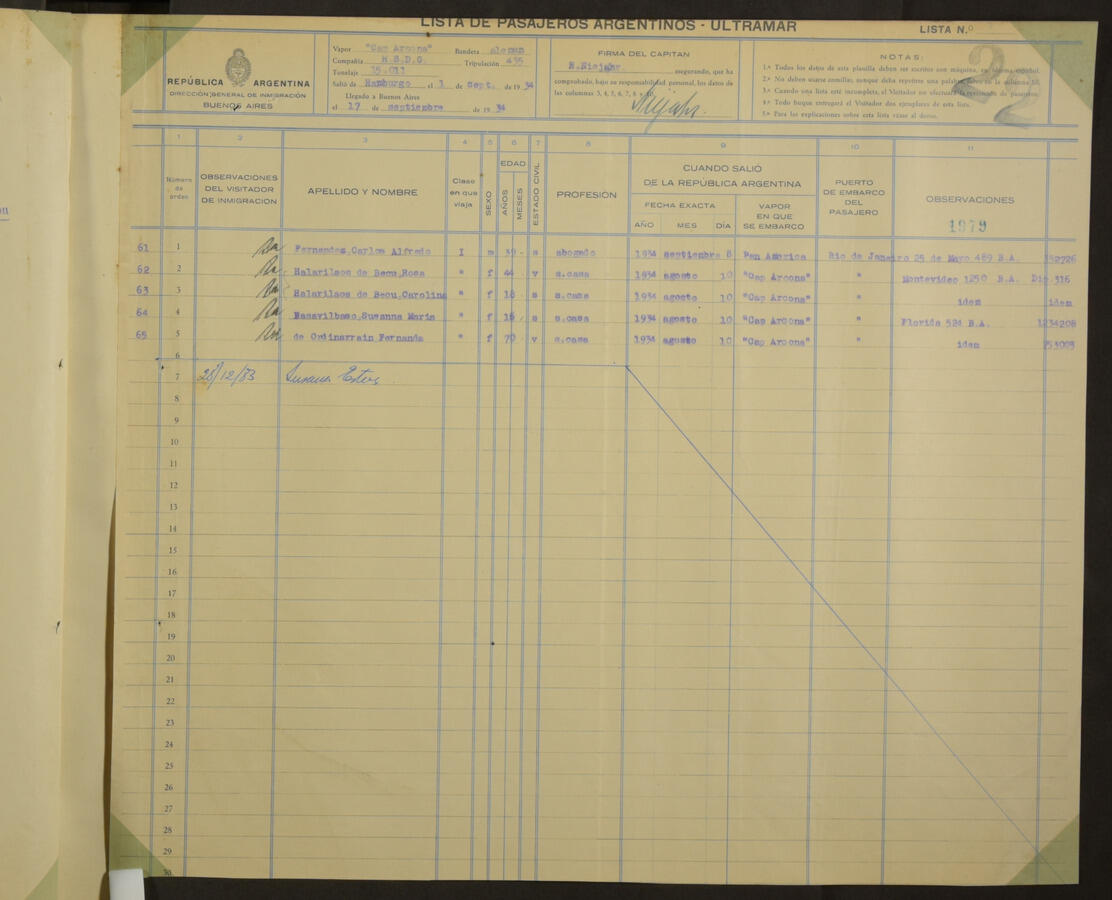 LISTA DE PASAJEROS ARGENTINOS - ULTRAMAR
LISTA N.º
22
REPÚBLICA ARGENTINA
DIRECCIÓN GENERAL DE INMIGRACIÓN
BUENOS AIRES
Vapor "Cap Arcona" Bandera aleman
Compañía H.S.D.G. Tripulación 435
Tonelaje 15.011
Salió de Hamburgo el 1 de sept. de 1934
Llegado a Buenos Aires
el 17 de septiembre de 1934
FIRMA DEL CAPITAN
R.Niejahr asegurando, que ha
comprobado, bajo su responsabilidad personal, los datos de
las columnas 3, 4, 5, 6, 7, 8 y 10.
NOTAS:
1.ª Todos los datos de esta planilla deben ser escritos con máquina, en idioma español.
2.ª No deben usarse comillas, aunque deba repetirse una palabra, salvo en la columna 10.
3.ª Cuando una lista esté incompleta, el Visitador no efectuará la revisación de pasajeros.
4.ª Todo buque entregará al Visitador dos ejemplares de esta lista.
5.ª Para las explicaciones sobre esta lista véase al dorso.
1 2 3 4 5 6 7 8 9 10 11
Número de orden
OBSERVACIONES DEL VISITADOR DE INMIGRACIÓN
APELLIDO Y NOMBRE
Clase en que viaja
SEXO
EDAD
AÑOS
MESES
ESTADO CIVIL
PROFESIÓN
CUANDO SALIÓ DE LA REPÚBLICA ARGENTINA
FECHA EXACTA
AÑO MES DÍA
VAPOR EN QUE SE EMBARCO
PUERTO DE EMBARCO DEL PASAJERO
OBSERVACIONES
1979
61 1 Fernandez, Carlos Alfredo I m 39 - s abogado 1934 septiembre 8 Pan America Rio de Janeiro 25 de Mayo 489 B.A.
62 2 Halarilaos de Becu, Rosa " f 44 v s.casa 1934 agosto 10 "Cap Arcona" " Montevideo 1250 B.A.
63 3 Halarilaos de Becu, Carolina " f 18 s s.casa 1934 agosto 10 "Cap Arcona" " idem idem
64 4 Basavilbaso, Susanna Maria " f 16 s s.casa 1934 agosto 10 "Cap Arcona" " Florida 524 B.A. 1234208
65 5 de Ordinarrain Fernanda " f 70 v s.casa 1934 agosto 10 "Cap Arcona" " idem
6
7 28/12/83
8
9
10
11
12
13
14
15
16
17
18
19
20
21
22
23
24
25
26
27
28
29
30